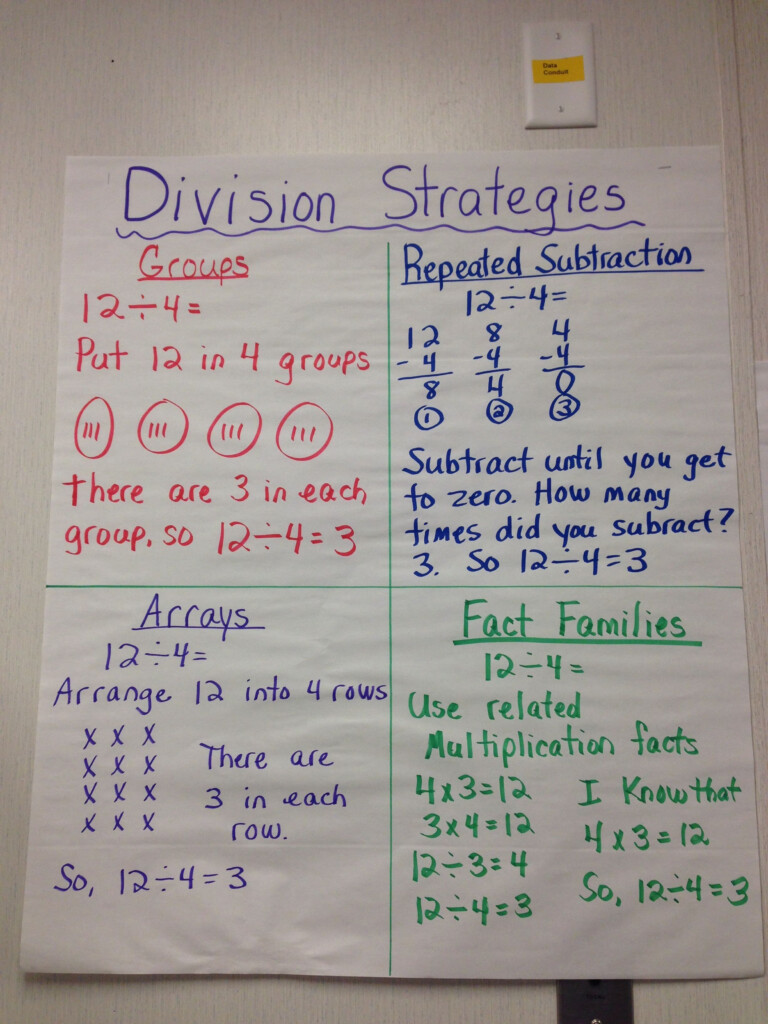 Data
Conduit
Division Strategies
Groups
12÷4=
Put 12 in 4 groups
There are 3 in each
group, so 12÷4=3
Repeated Subtraction
12÷4=
12 8 4
-4 -4 -4
8 4 0
1 2 3
Subtract until you get
to zero. How many
times did you subract?
3. So 12÷4=3
Arrays
12÷4=
Arrange 12 into 4 rows
x x x
x x x
x x x
x x x
There are
3 in each
row.
So, 12÷4=3
Fact Families
12÷4=
Use related
Multiplication facts
4x3=12
3x4=12
12÷3=4
12÷4=3
I Know that
4x3=12
So, 12÷4=3